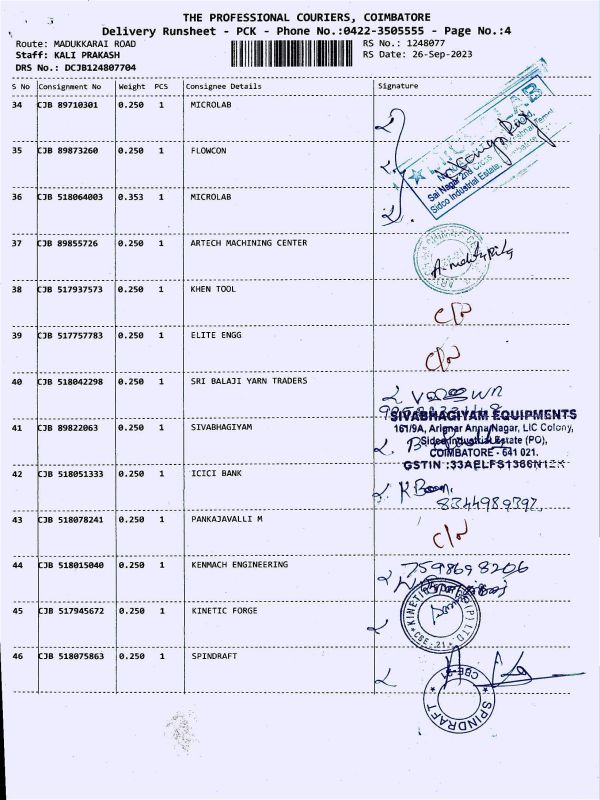 THE PROFESSIONAL COURIERS, COIMBATORE
Delivery Runsheet - PCK - Phone No.:0422-3505555 - Page No.:4
Route: MADUKKARAI ROAD RS No.: 1248077
Staff: KALI PRAKASH RS Date: 26-Sep-2023
DRS No.: DCJB124807704
S No Consignment No Weight PCS Consignee Details Signature
34 CJB 89710301 0.250 1 MICROLAB
35 CJB 89873260 0.250 1 FLOWCON
Sai Nagar 2nd
Sidco Industrial Estate,
36 CJB 518064003 0.353 1 MICROLAB
37 CJB 89855726 0.250 1 ARTECH MACHINING CENTER
38 CJB 517937573 0.250 1 KHEN TOOL
39 CJB 517757783 0.250 1 ELITE ENGG
40 CJB 518042298 0.250 1 SRI BALAJI YARN TRADERS
SIVABHAGIYAM EQUIPMENTS
41 CJB 89822063 0.250 1 SIVABHAGIYAM
161/9A, Arignar Anna Nagar, LIC Colony,
Sidco Industrial Estate (PO),
COIMBATORE - 641 021.
GSTIN :33AELFS1366N1ZK
42 CJB 518051333 0.250 1 ICICI BANK
8344989397
43 CJB 518078241 0.250 1 PANKAJAVALLI M
44 CJB 518015040 0.250 1 KENMACH ENGINEERING
7598698206
45 CJB 517945672 0.250 1 KINETIC FORGE
KINETIC (P) LTD.
CBE - 21
46 CJB 518075863 0.250 1 SPINDRAFT
CBE-21
SPINDRAFT